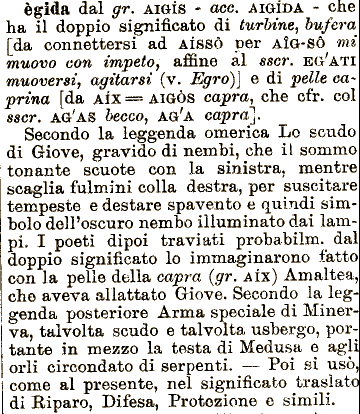 ègida dal gr. AIGÍS - acc. AIGÍDA - che
ha il doppio significato di turbine, bufera
[da connettersi ad AÍSSÔ per AÎG-SÔ mi
muovo con impeto, affine al sscr. EG'ATI
muoversi, agitarsi (v. Egro)] e di pelle ca-
prina [da AÍX = AIGÒS capra, che cfr. col
sscr. AG'AS becco, AG'A capra].
Secondo la leggenda omerica Lo scudo
di Giove, gravido di nembi, che il sommo
tonante scuote con la sinistra, mentre
scaglia fulmini colla destra, per suscitare
tempeste e destare spavento e quindi sim-
bolo dell'oscuro nembo illuminato dai lam-
pi. I poeti dipoi traviati probabilm. dal
doppio significato lo immaginarono fatto
con la pelle della capra (gr. AÍX) Amaltea,
che aveva allattato Giove. Secondo la leg-
genda posteriore Arma speciale di Miner-
va, talvolta scudo e talvolta usbergo, por-
tante in mezzo la testa di Medusa e agli
orli circondato di serpenti. — Poi si usò,
come al presente, nel significato traslato
di Riparo, Difesa, Protezione e simili.